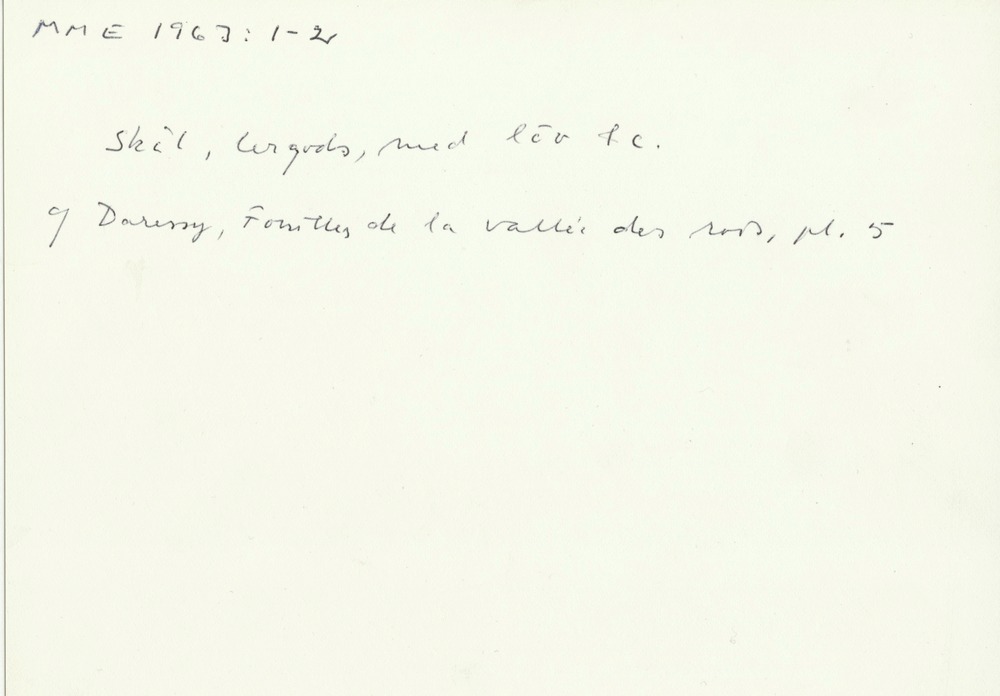 MME 1963: 1-2
Skål, lergods, med löv
cf Daressy, Fouilles de la vallée des rois, pl. 5